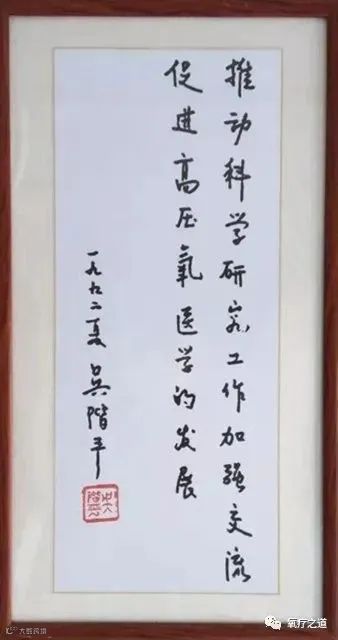 推动科学研究工作加强交流
促进高压氧医学的发展
一九九二夏 吴阶平
吴阶平
大数跨境
氧疗之道